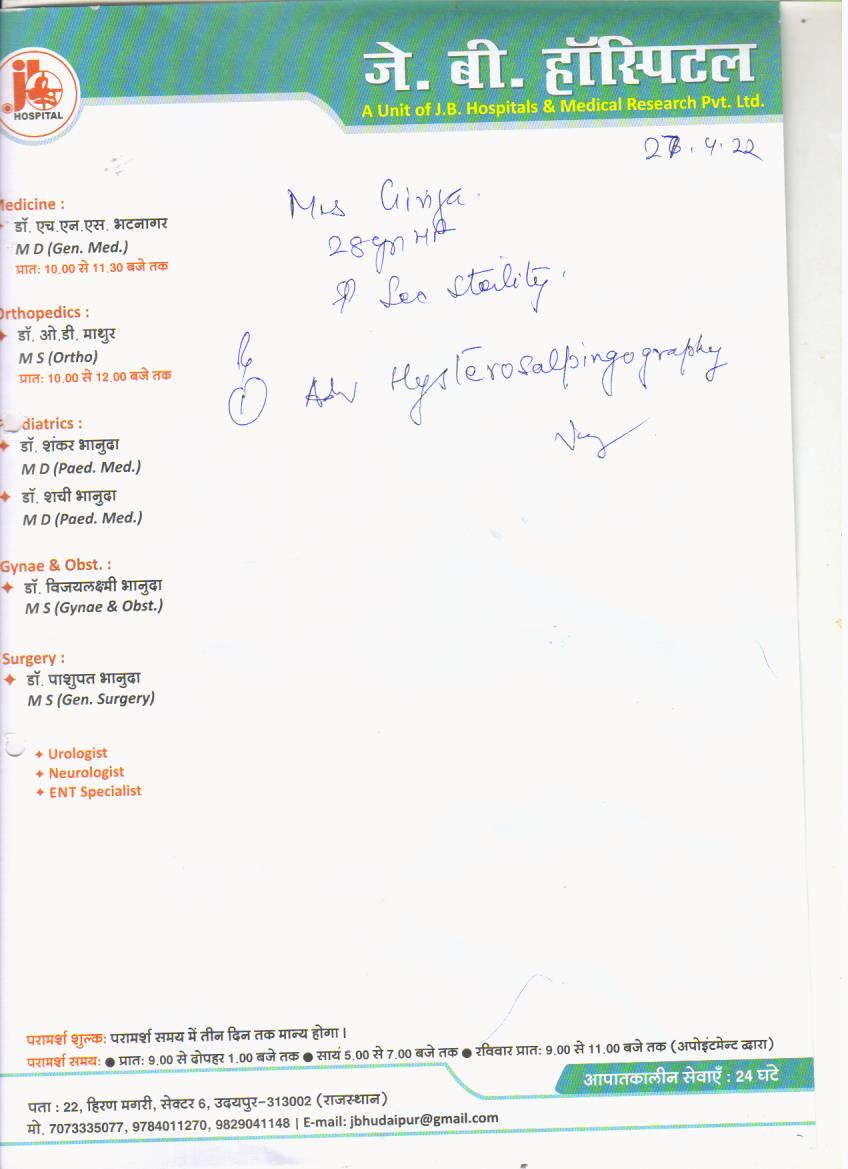 जे. बी. हॉस्पिटल
A Unit of J.B. Hospitals & Medical Research Pvt. Ltd.
HOSPITAL
.4.22
Mrs Girija
28yrs
Sec Sterility
Rx
① Adv Hysterosalpingography
edicine :
डॉ. एच.एन.एस. भटनागर
M D (Gen. Med.)
प्रात: 10.00 से 11.30 बजे तक
rthopedics :
डॉ. ओ.डी. माथुर
M S (Ortho)
प्रात: 10.00 से 12.00 बजे तक
diatrics :
डॉ. शंकर भानुदा
M D (Paed. Med.)
डॉ. शची भानुदा
M D (Paed. Med.)
Gynae & Obst. :
डॉ. विजयलक्ष्मी भानुदा
M S (Gynae & Obst.)
Surgery :
डॉ. पाशुपत भानुदा
M S (Gen. Surgery)
Urologist
Neurologist
ENT Specialist
परामर्श शुल्क: परामर्श समय में तीन दिन तक मान्य होगा।
परामर्श समय: ● प्रात: 9.00 से दोपहर 1.00 बजे तक ● सायं 5.00 से 7.00 बजे तक ● रविवार प्रात: 9.00 से 11.00 बजे तक (अपोइंटमेन्ट द्वारा)
आपातकालीन सेवाएँ : 24 घटे
पता : 22, हिरण मगरी, सेक्टर 6, उदयपुर-313002 (राजस्थान)
मो. 7073335077, 9784011270, 9829041148 | E-mail: jbhudaipur@gmail.com